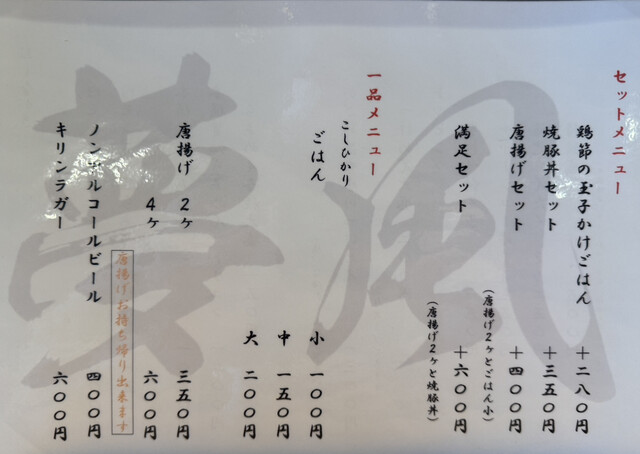 セットメニュー
鶏節の玉子かけごはん ＋二八〇円
焼豚丼セット ＋三五〇円
唐揚げセット ＋四〇〇円
（唐揚げ2ヶとごはん小）
満足セット ＋六〇〇円
（唐揚げ2ヶと焼豚丼）
一品メニュー
こしひかり
ごはん 小 一〇〇円
中 一五〇円
大 二〇〇円
唐揚げ 2ヶ 三五〇円
4ヶ 六〇〇円
唐揚げお持ち帰り出来ます
ノンアルコールビール 四〇〇円
キリンラガー 六〇〇円
夢風